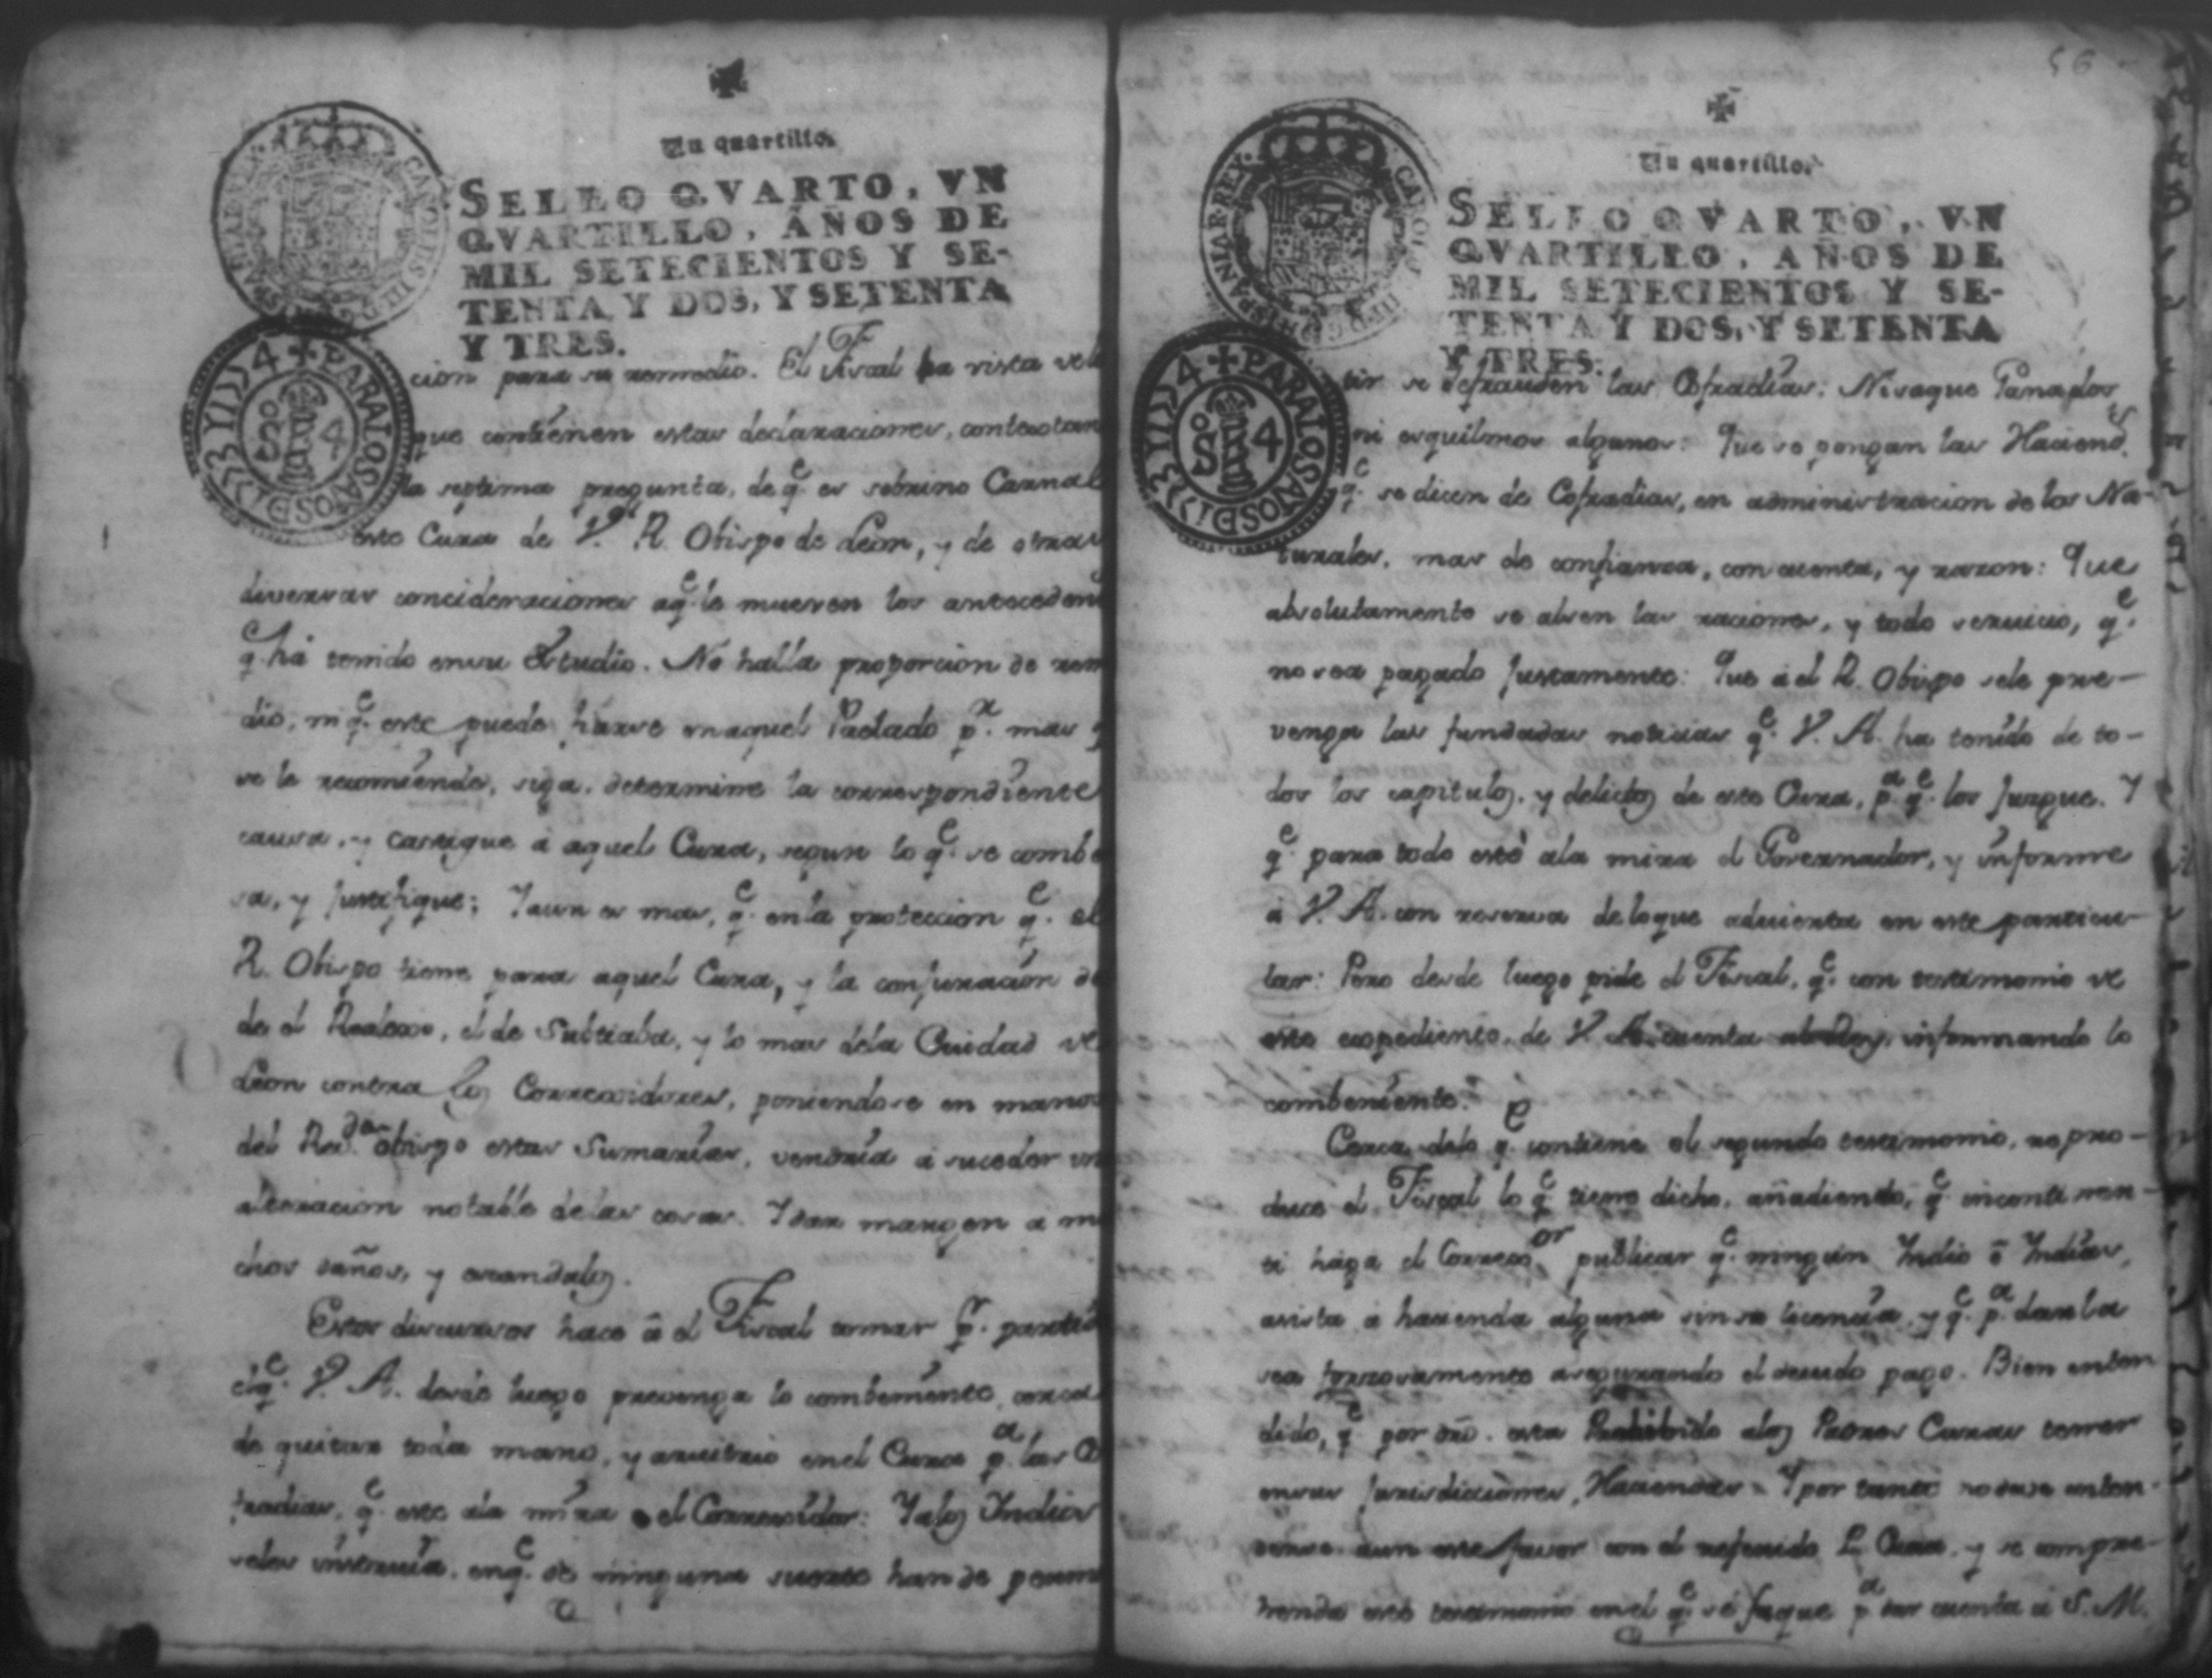 Un quartillo.
SELLO QVARTO, VN
QVARTILLO, AÑOS DE
MIL SETECIENTOS Y SE-
TENTA Y DOS, Y SETENTA
Y TRES.
cion para su remedio. El Fiscal ha vista
que contienen estas declaraciones, contextan
la septima pregunta, de q.e es sobrino Carnal
este Cura de V.o R. Obispo de Leon, y de otras
diversas concideraciones aq.e le mueven los antecedent
q.e ha tenido en su Estudio. No halla proporcion de rem
dio, ni q.e este puede hazerse en aquel Prelado p.r mas q
se le recomiende, siga, determine la correspondiente
causa, y castigue a aquel Cura, segun lo q.e se combe
sa, y justifique; Y aun es mas, q.e en la proteccion q.e el
R. Obispo tiene para aquel Cura, y la conjuracion de
de el Realexo, el de Subtiaba, y lo mas dela Ciudad de
Leon contra los Correxidores, poniendose en manos
del Rev.do obispo estas Sumarias, vendria a suceder un
alteracion notable de las cosas. Y dar margen a mu
chos daños, y escandalos.
Estos discursos hace á el Fiscal tomar p.r partido
el q.e V. A. desde luego prevenga lo combeniente, cerca
de quitar toda mano, y arvitrio en el Cura p.a las Co
fradias, q.e esté ala mira el Correxidor: Y alos Indios
seles instruia, en q.e de ninguna suerte han de permi
56
Un quartillo.
SELLO QVARTO, VN
QVARTILLO, AÑOS DE
MIL SETECIENTOS Y SE-
TENTA Y DOS, Y SETENTA
Y TRES.
tir se defrauden las Cofradías: Ni saque Ganados
ni esquilmos algunos: Que se pongan las Haciend.s
q.e se dicen de Cofradias, en administracion de los Na-
turales, mas de confianza, con cuenta, y razon: Que
absolutamente se alsen las raciones, y todo servicio, q.e
no sea pagado justamente: Que á el R. Obispo sele pre-
venga las fundadas noticias q.e V. A. ha tenido de to-
dos los capitulos, y delictos de este Cura, p.a q.e los jusgue. Y
q.e para todo esté ala mira el Governador, y informe
á V. A. con reserva de loque advierta en este particu-
lar: Pero desde luego pide el Fiscal, q.e con testimonio de
este expediente, de V. A. cuenta al Rey, informando lo
combeniente.
Cerca delo q.e contiene el segundo testimonio, repro-
duce el Fiscal lo q.e tiene dicho, añadiendo, q.e incontinen-
ti haga el Correg.or publicar q.e ningun Indio ó Indias,
asista á hacienda alguna sin su licencia, y q.e p.a darla
sea forzosamente asegurando el devido pago. Bien enten
dido, q.e por dro. esta Prohibido alos Padres Curas tener
en sus jurisdiciones, Haciendas. Y por tanto no deve enten-
derse aun este favor con el referido P. Cura, y se compre-
henda este testimonio en el q.e se saque p.a dar cuenta á S. M.